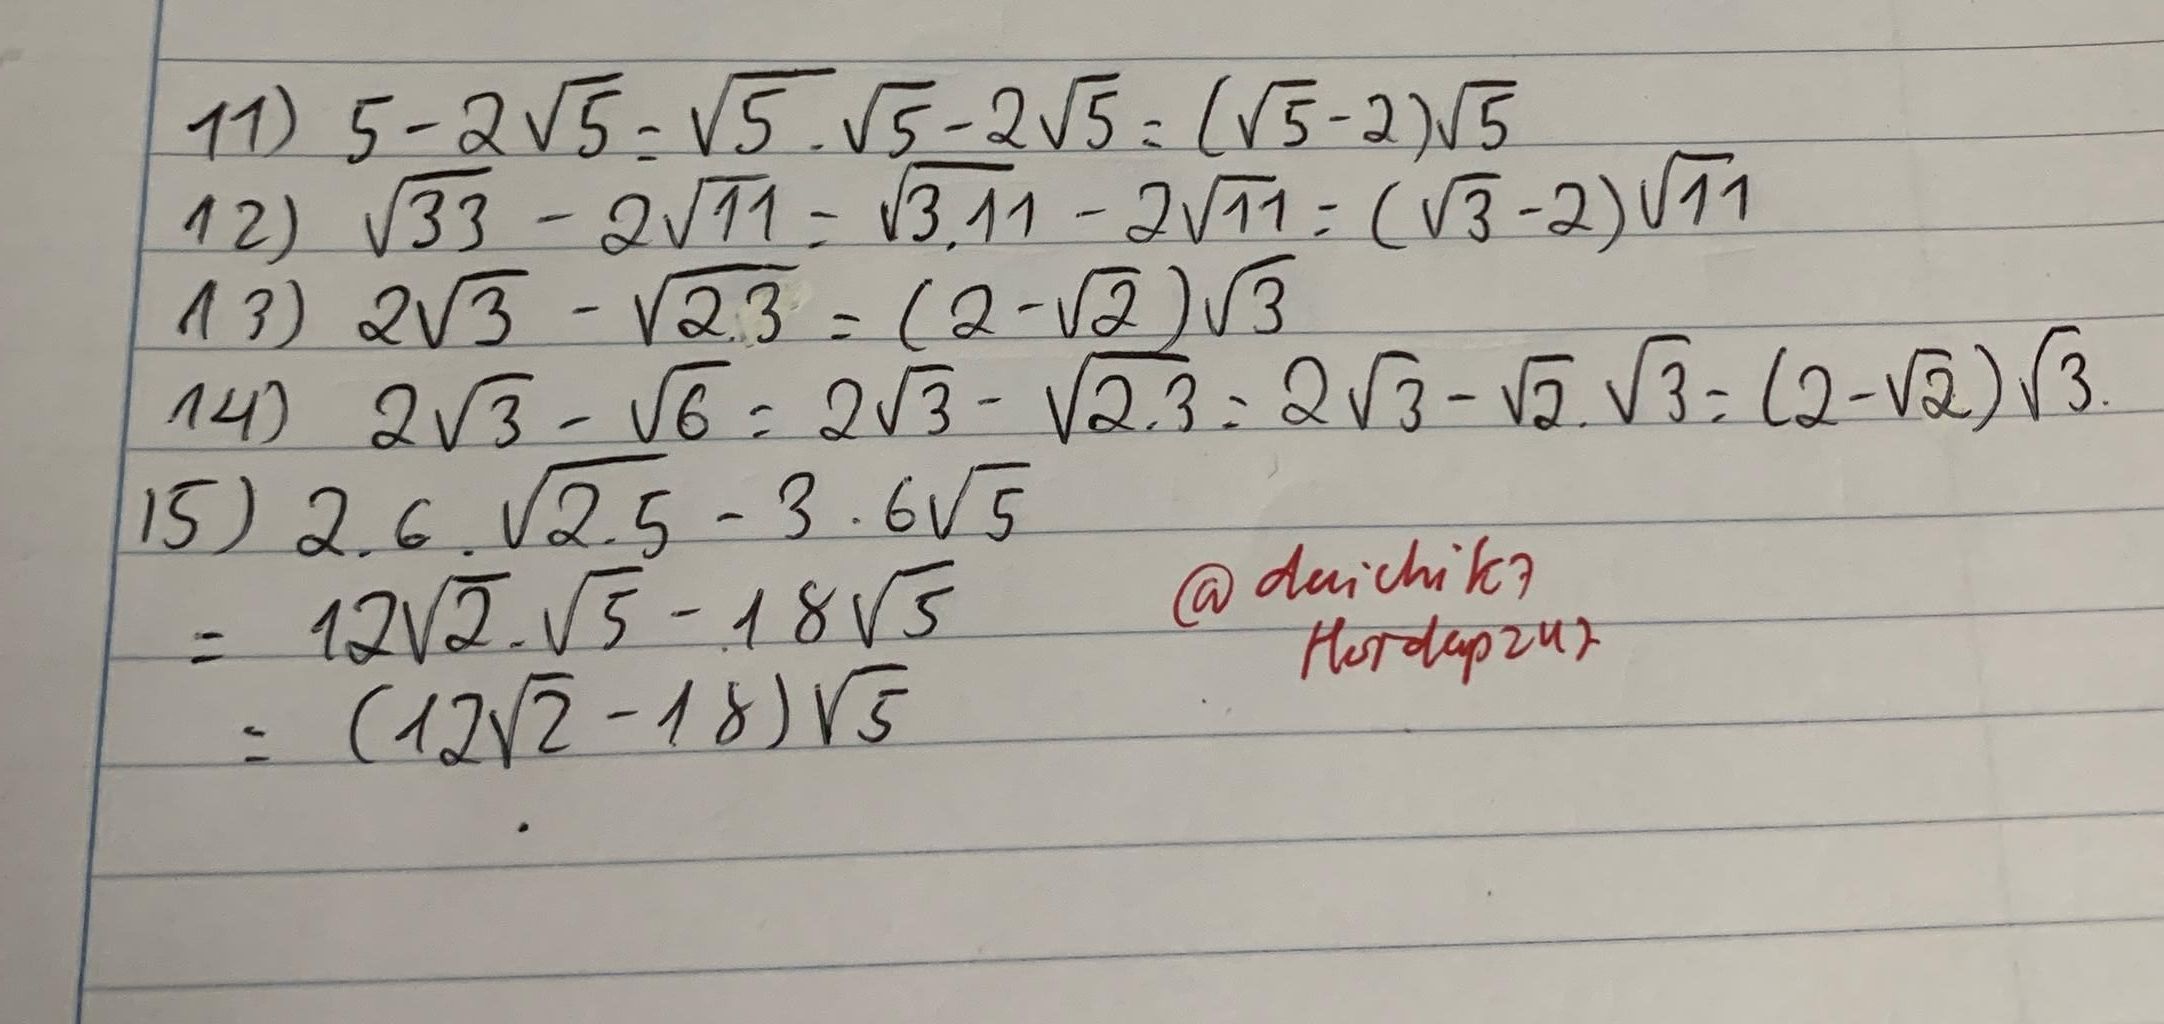 11) 5 - 2√5 = √5 . √5 - 2√5 = (√5 - 2)√5
12) √33 - 2√11 = √3.11 - 2√11 = (√3 - 2)√11
13) 2√3 - √2.3 = (2 - √2)√3
14) 2√3 - √6 = 2√3 - √2.3 = 2√3 - √2 . √3 = (2 - √2)√3.
15) 2.6.√2.5 - 3.6√5
= 12√2 . √5 - 18√5
= (12√2 - 18)√5
@daichik7
Hordap247